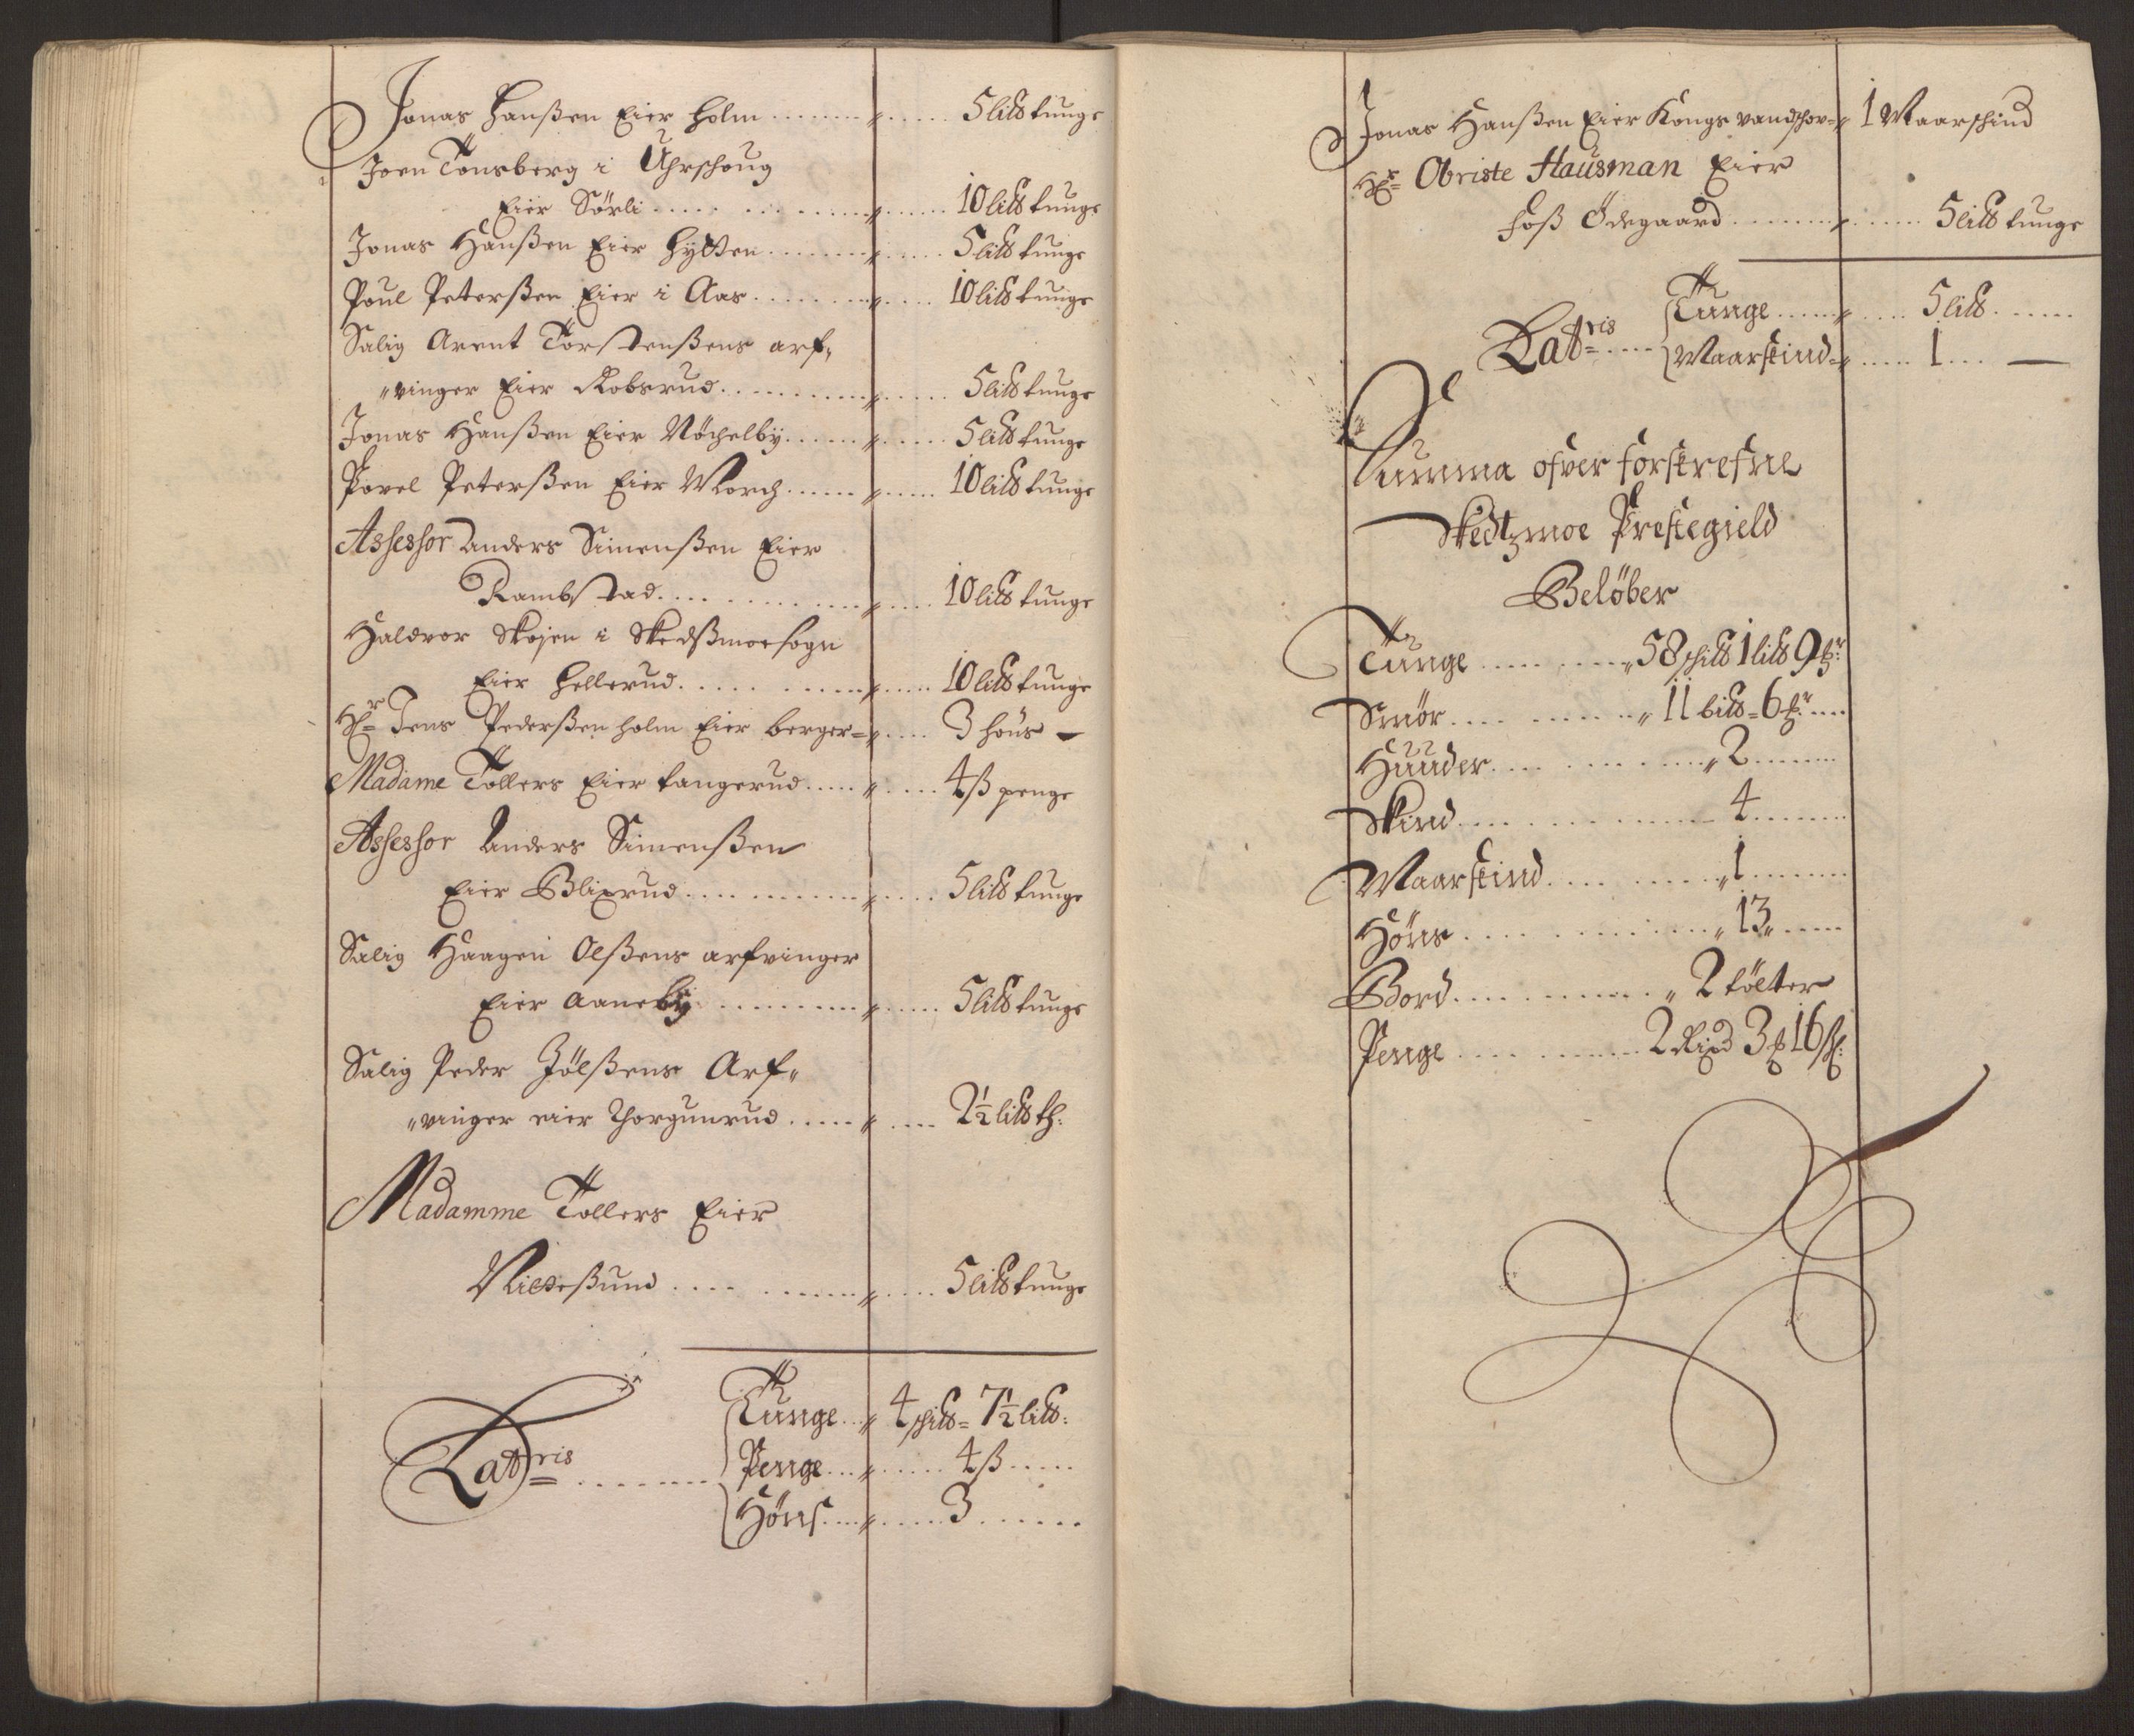 Jonas Hanßen Eier Holm ........ „ ..... 5 litt tunge
Joen Tonsberg i Uhrschoug
Eier Sörli ..... ............ „ ...... 10 litt tunge
Jonas Hanßen Eier Hytten ........ „ ..... 5 litt tunge
Poul Peterßen Eier i Aas ......... „ .... 10 litt tunge
Salig Arent Torstenßens arf„
„vinger Eier Robsrud ........... „ ...... 5 litt tunge
Jonas Hanßen Eier Nöchelby ...... „ ...... 5 litt tunge
Povel Peterßen Eier Morch ...... „ ..... 10 litt tunge
Assessor Anders Simenßen Eier
Rambstad .... ........ „ .... 10 litt tunge
Haldvor Skojen i Skedßmoe sogn
Eier Hellerud ..... ....... „ ..... 10 litt tunge
Hr= Jens Pederßen Holm Eier berger= „ .... 3 höns —
Madame Tollers Eier tangerud ..... „ ..... 4 ß penge
Assessor Anders Simenßen
Eier Blixrud .... ......... „ ..... 5 litt tunge
Salig Haagen Olßens arfvinger
Eier Aaneby ........... „ ..... 5 litt tunge
Salig Peder Jölßens Arf„
„vinger eier Thorgunrud ..... „ .... 2½ litt th:
Madamme Tollers Eier
Nilteßund .... ........ „ .... 5 litt tunge
Tunge ... „ 4 schitt= 7½ litt:
Latris= ........ Penge ... „ ..... 4 ß .....
Höns .... „ ..... 3 ......
Jonas Hanßen Eier Kongs vandschov= „ 1 Waarschind
Hr= Obriste Hausman Eier
Foß Ödegaard ......... „ ...... 5 litt tunge
Tunge ...... „ .... 5 litt ......
Latris= .... Waarskind= „ ..... 1 ... —
Summa ofver forskrefne
Skedtzmoe Prestegield
Belöber
Tunge ..... ..... „ 58 schitt 1 litt 9 hr:
Smör .... ....... „ 11 bitt= 6 hr: ....
Huuder .... ........ „ 2 .......
Skind .... ........... 4 ........
Waarskind .... ...... „ 1 ........
Höns .... ........ „ 13 „ .....
Bord .... ........ „ 2 tölter
Penge .... ........ 2 Rixd 3 ß 16 s: